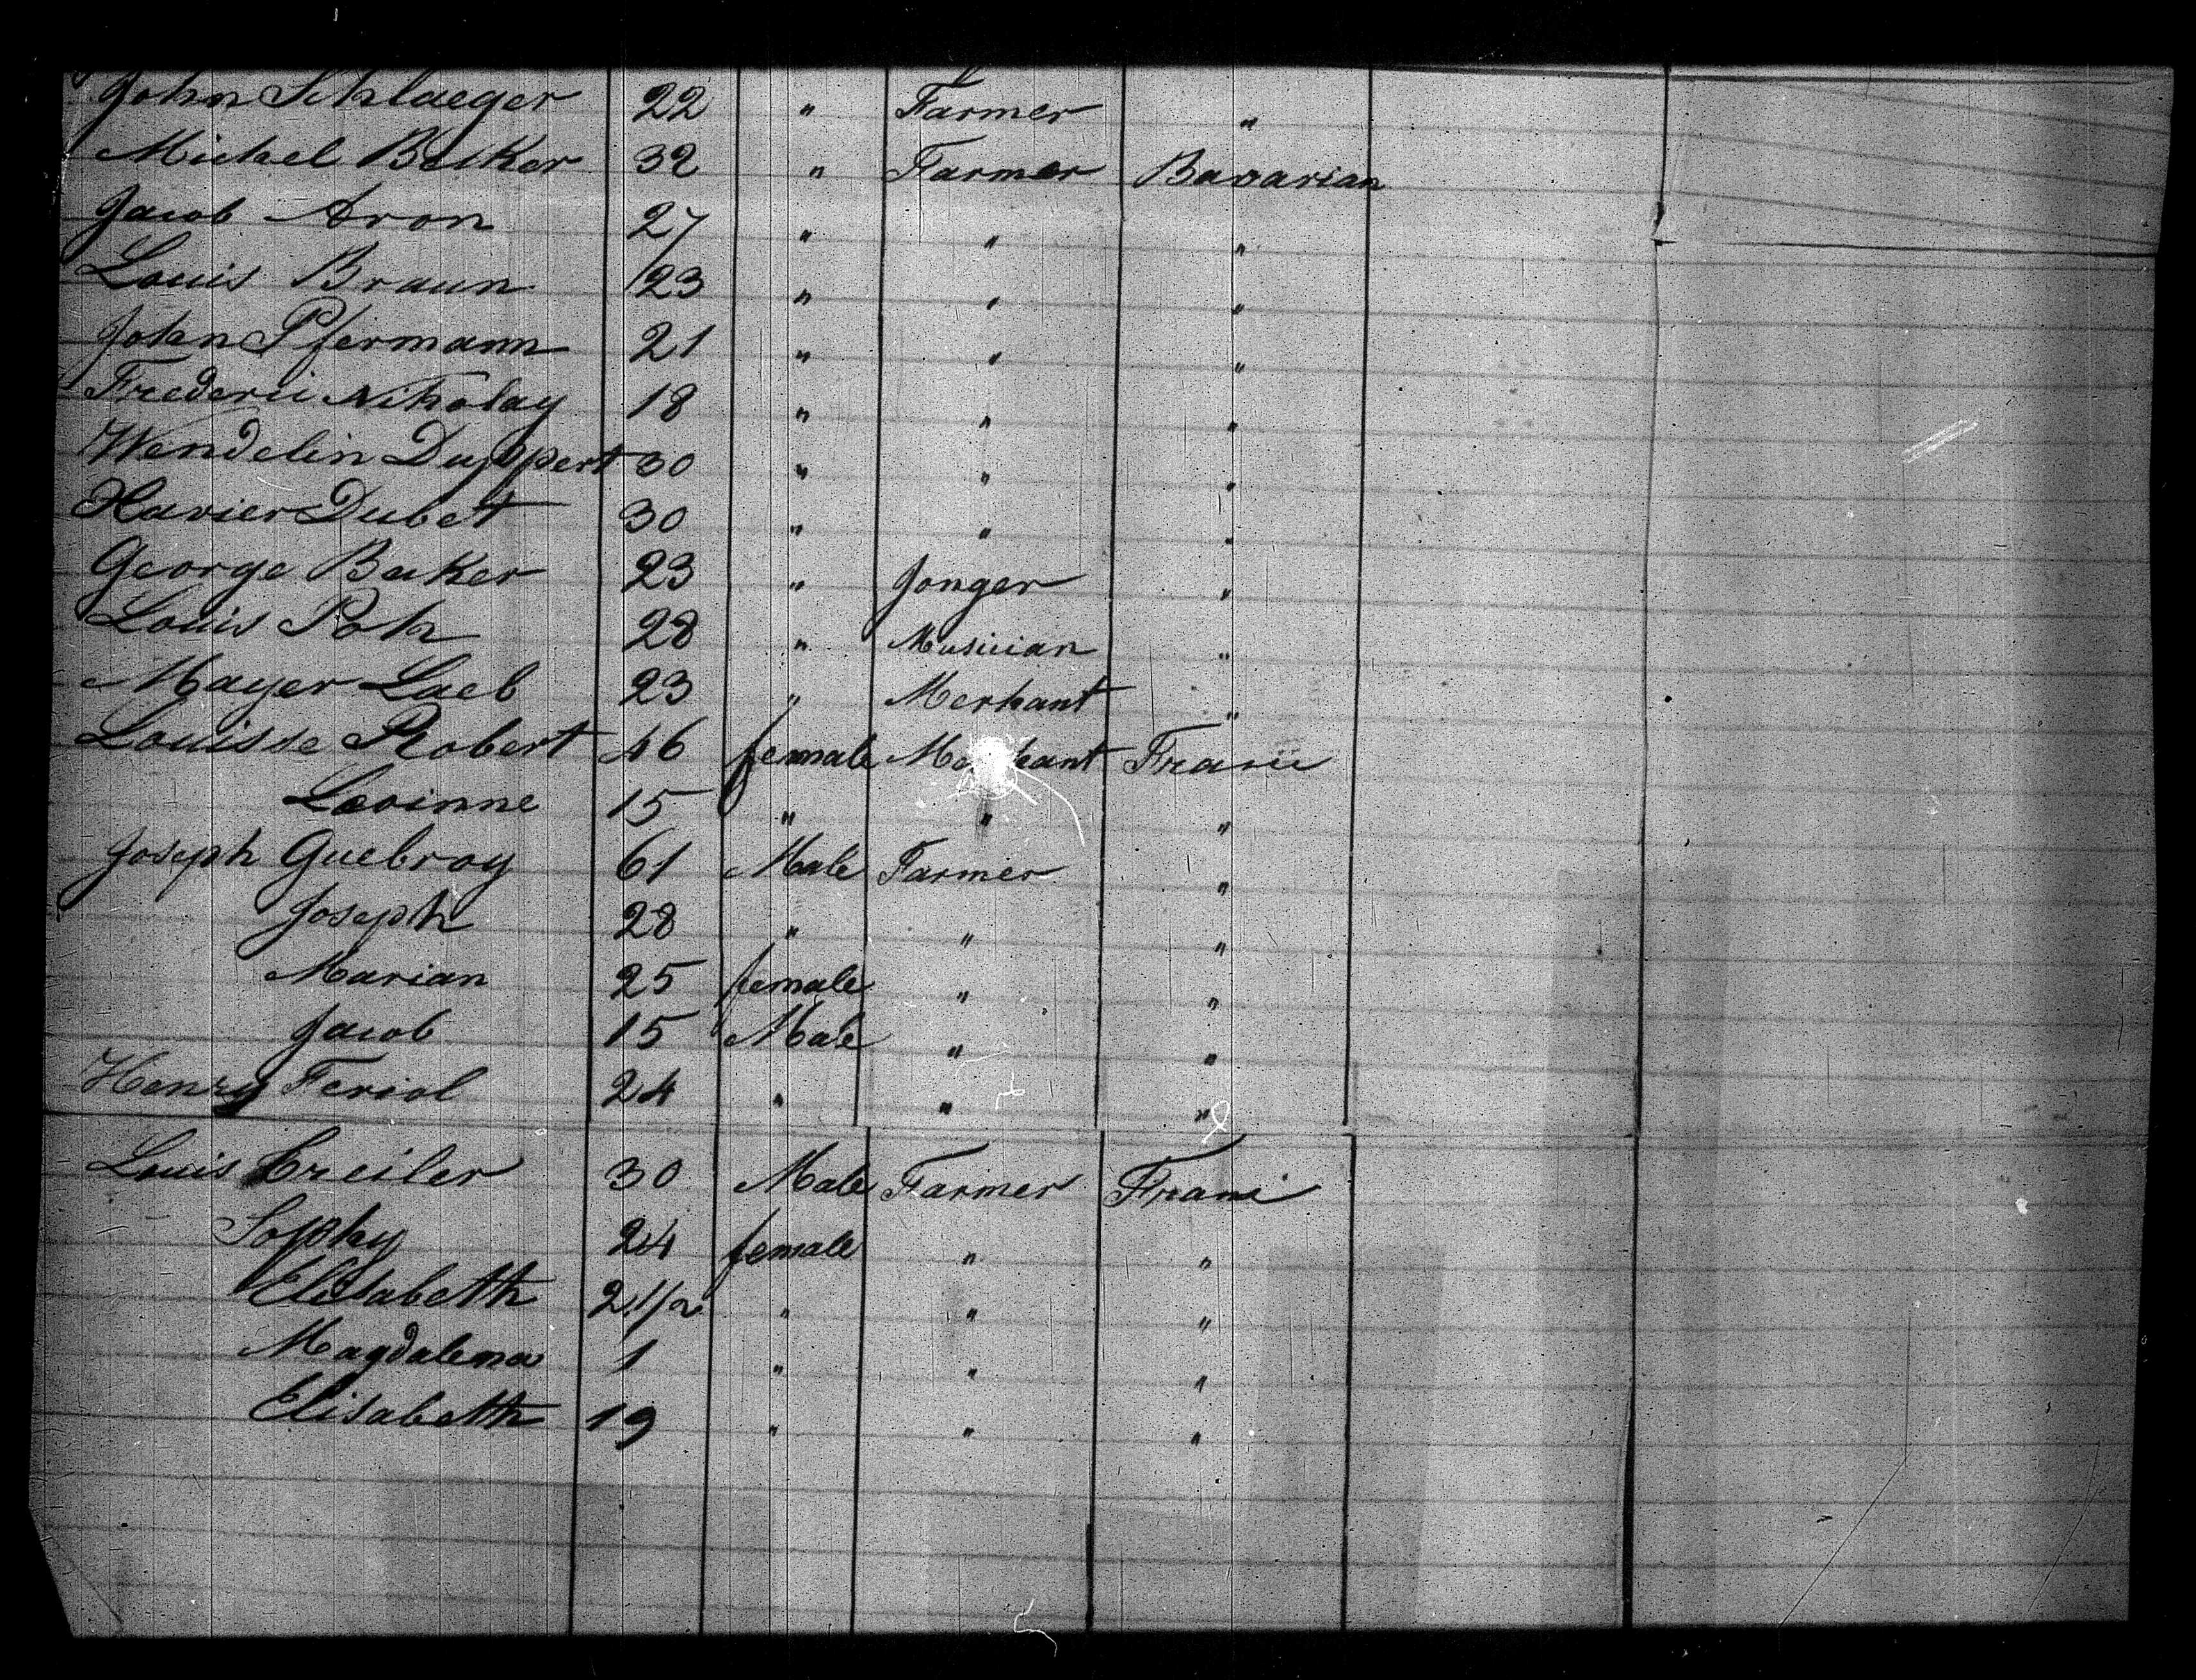 John Schlaeger 22 " Farmer "
Michel Becker 32 " Farmer Bavarian
Jacob Aron 27 " " "
Louis Braun 23 " " "
John Pfermann 21 " " "
Frederic Nikolay 18 " " "
Wendelin Duppert 30 " " "
Xavier Dubet 30 " " "
George Becker 23 " Jonger "
Louis Poh 28 " Musician "
Mayer Laeb 23 " Merhant "
Louisse Robert 46 female Merhant France
Lovinne 15 " " "
Joseph Guebroy 61 Male Farmer "
Joseph 28 " " "
Marian 25 female " "
Jacob 15 Male " "
Henry Feriol 24 " " "
Louis Creiler 30 Male Farmer France
Sophy 24 female " "
Elisabetth 2 1/2 " " "
Magdalena 1 " " "
Elisabetth 19 " " "